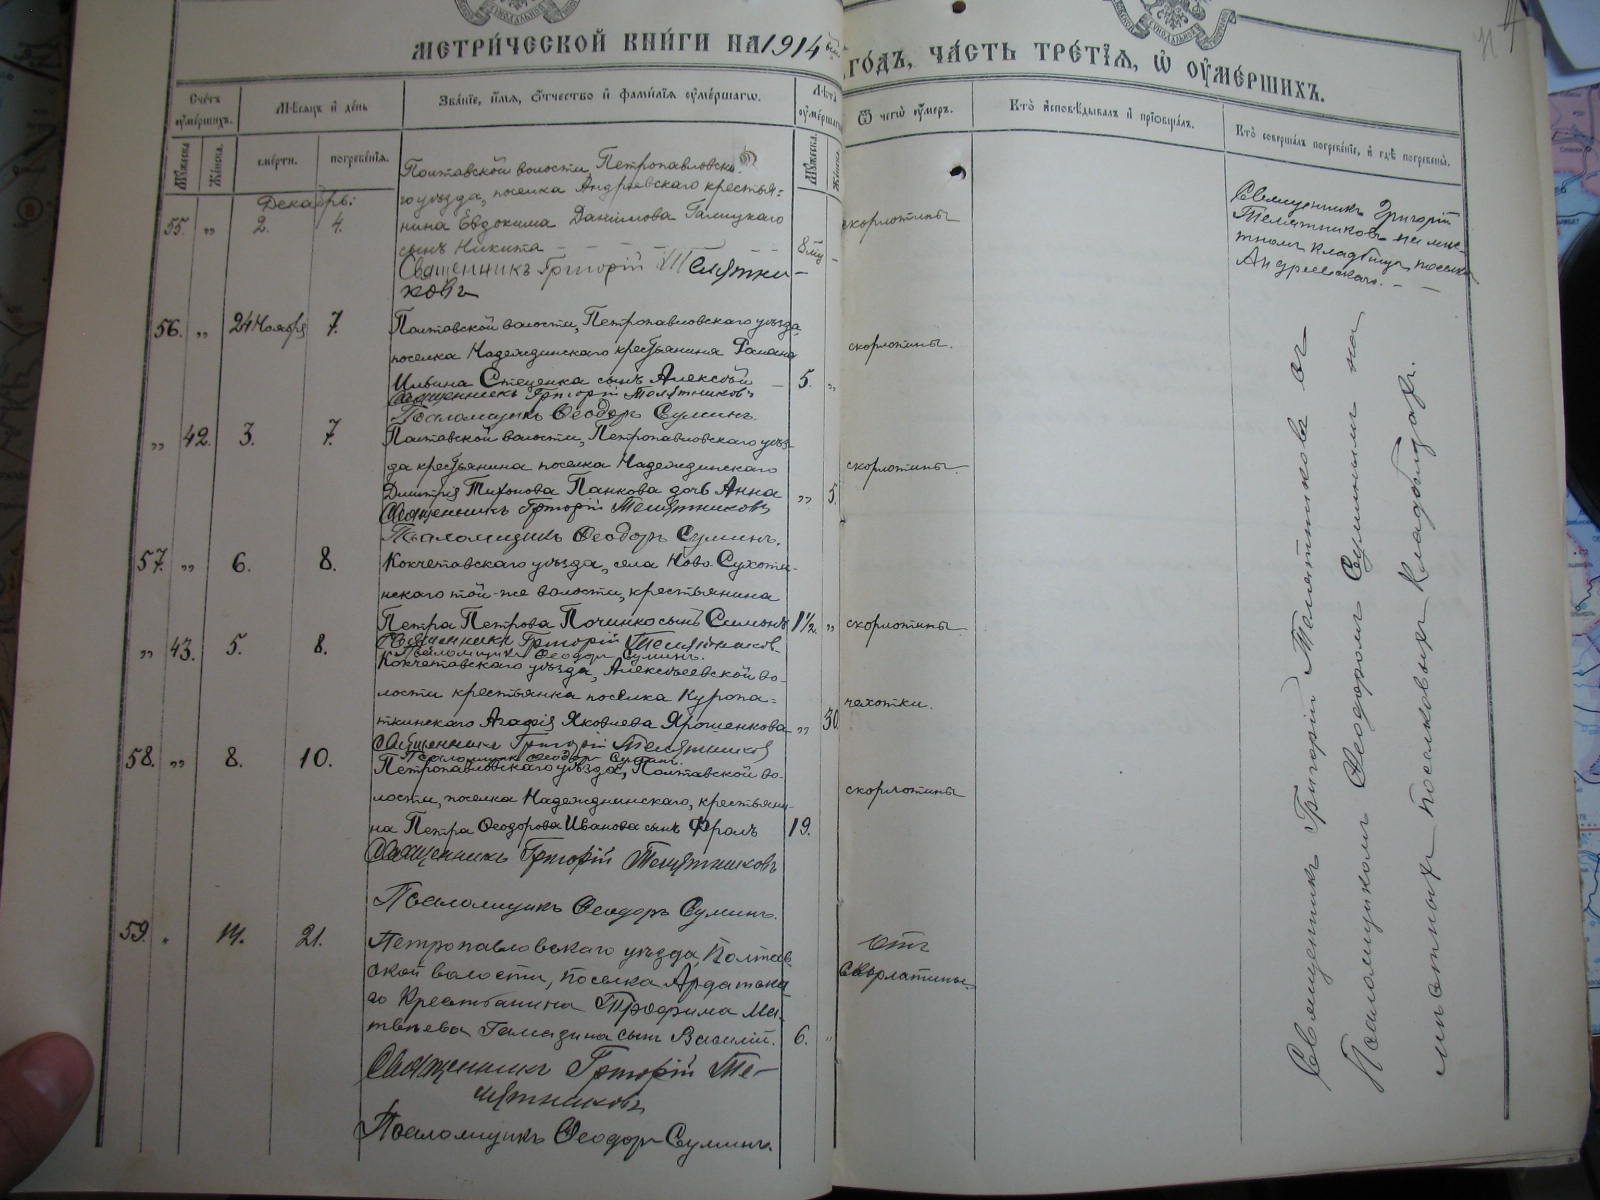 МЕТРИЧЕСКОЙ КНИГИ НА 1914
ГОДЪ, ЧАСТЬ ТРЕТІЯ, Ѿ ОУМЕРШИХЪ.
Счетъ оумершихъ.
Мѣсяцъ и день
Званіе, имя, отчество и фамилія оумершаго.
Лѣта оумершаго
Ѿ чего оумеръ.
Кто исповѣдывалъ и пріобщалъ.
Кто совершалъ погребеніе, и гдѣ погребены.
Мужеска.
Женска.
смерти.
погребенія.
Мужеска.
Женска
Декабрь:
55. „ 2. 4.
Полтавской волости, Петропавловска-
го уѣзда, поселка Андреевскаго крестья-
нина Евдокима Данилова Галицкаго
сынъ Никита
8 мц
скорлотины
Священникъ Григорій Телятни-
ковъ
Священникъ Григорій
Телятниковъ на мѣс-
тномъ кладбищѣ поселка
Андреевскаго.
56. „ 24 Ноября 7.
Полтавской волости, Петропавловскаго уѣзда,
поселка Надеждинскаго крестьянина Романа
Ильина Стеценка сынъ Алексѣй
5. „
скорлотины.
Священникъ Григорій Телятниковъ
Псаломщикъ Ѳеодоръ Суминъ.
„ 42. 3. 7.
Полтавской волости, Петропавловскаго уѣз-
да крестьянина поселка Надеждинскаго
Дмитрія Тихонова Панкова дочь Анна
„ 5.
скорлотины.
Священникъ Григорій Телятниковъ
Псаломщикъ Ѳеодоръ Суминъ.
57. „ 6. 8.
Кокчетавскаго уѣзда, села Ново-Сухоти-
нскаго той-же волости, крестьянина
Петра Петрова Починко сынъ Симонъ
1½. „
скорлотины.
Священникъ Григорій Телятниковъ
Псаломщикъ Ѳеодоръ Суминъ.
„ 43. 5. 8.
Кокчетавскаго уѣзда, Алексѣевской во-
лости крестьянка поселка Куропа-
ткинскаго Агафія Яковлева Ярошенкова
„ 30
чехотки.
Священникъ Григорій Телятниковъ
Псаломщикъ Ѳеодоръ Суминъ.
58. „ 8. 10.
Петропавловскаго уѣзда, Полтавской во-
лости, поселка Надеждинскаго, крестьяни-
на Петра Ѳеодорова Иванова сынъ Фролъ
19.
скорлотины
Священникъ Григорій Телятниковъ
Псаломщикъ Ѳеодоръ Суминъ.
59. 14. 21.
Петропавловскаго уѣзда, Полтав-
ской волости, поселка Ардатска-
го Крестьянина Трофима Ма-
твѣева Гамазина сынъ Василій.
6. „
Отъ
скорлатины.
Священникъ Григорій Те-
лятниковъ
Псаломщикъ Ѳеодоръ Суминъ.
Священникъ Григорій Телятниковъ съ
Псаломщикомъ Ѳеодоромъ Суминымъ на
мѣстныхъ поселковыхъ кладбищахъ.